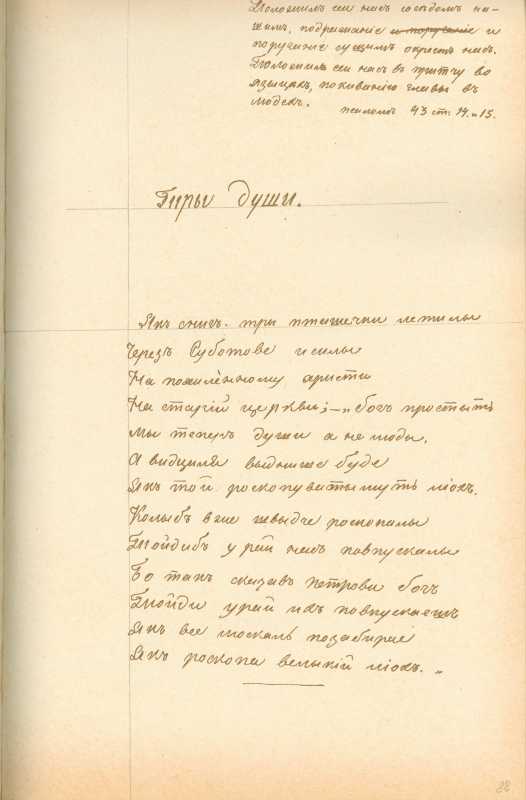 Положилъ еси насъ сосѣдомъ на-
шимъ, подражаніе и поруганіе и
поруганіе сущимъ окрестъ насъ.
Положилъ еси насъ въ притчу во
языцѣхъ, покиванію главы въ
людехъ. псаломъ 43 ст. 14. и 15.
Тиры души.
Якъ снигъ. три пташечки летилы
Черезъ Суботове и силы
На похилённому христи
На старій церкви; — „богъ простыть
Мы теперъ души а не люды.
А видциля выднише буде
Якъ той роскопуватымуть ліохъ.
Колыбъ вже швыдче роскопалы
Тойдибъ у рай насъ повпускалы
Бо такъ сказавъ Петрови богъ
Тойди у рай ихъ повпускаешъ
Якъ все москаль позабирае
Якъ роскопа великій ліохъ. „
28